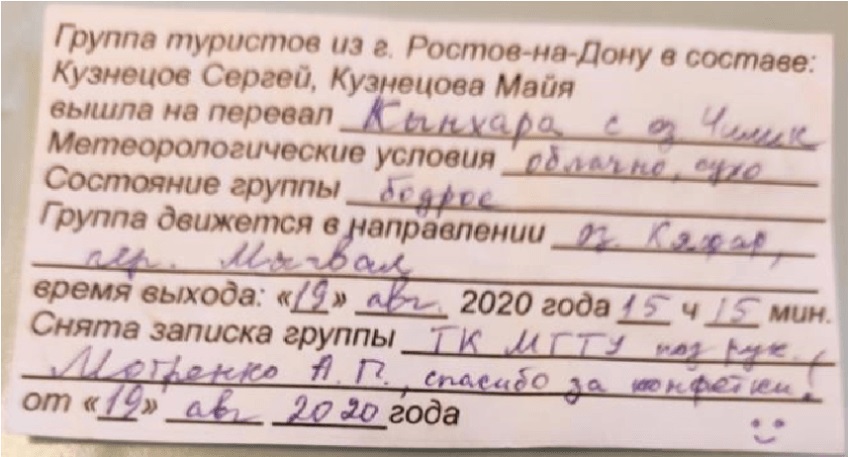 Группа туристов из г. Ростов-на-Дону в составе:
Кузнецов Сергей, Кузнецова Майя
вышла на перевал Кынхара с оз Чилик
Метеорологические условия облачно, сухо
Состояние группы бодрое
Группа движется в направлении оз. Кяфар,
пер. Мыгвал
время выхода: «19» авг. 2020 года 15 ч 15 мин.
Снята записка группы ТК МГТУ под рук.
Мотренко А. П., спасибо за конфетки!
от «19» авг 2020 года